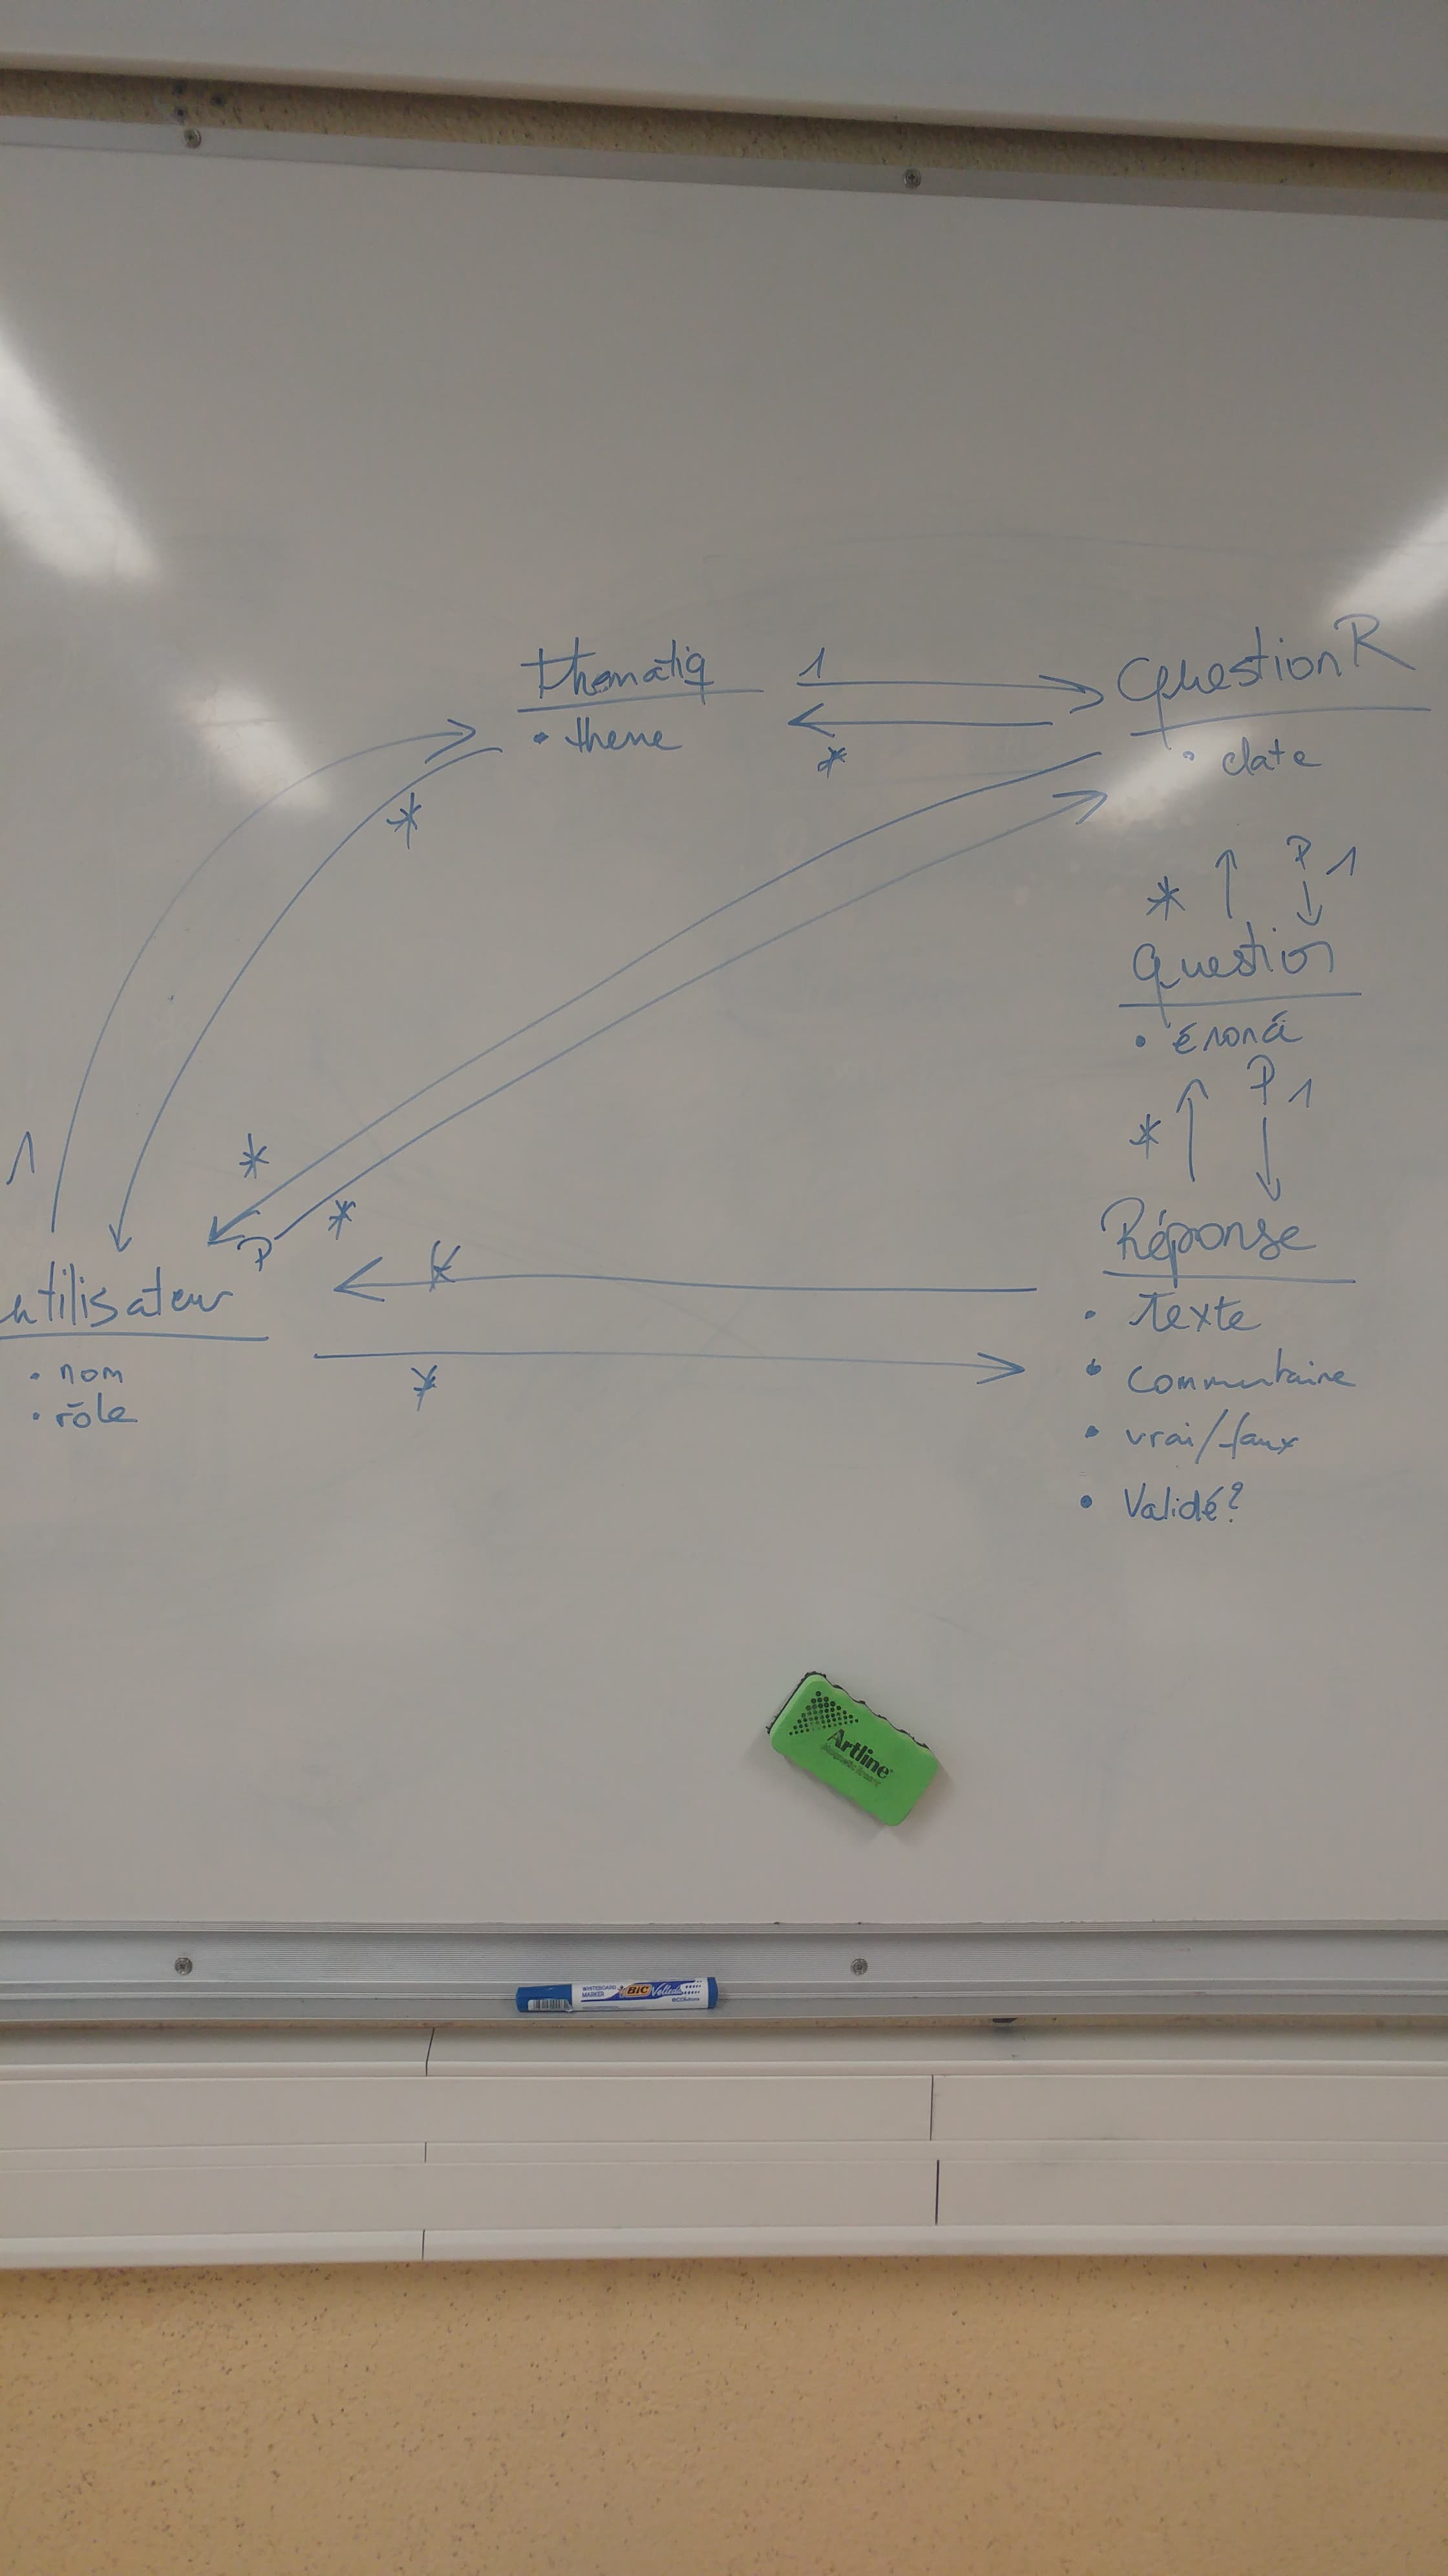 thématiq
• theme
1
*
QuestionR
• date
*
* P 1
Question
• énoncé
* P 1
Réponse
• texte
• commentaire
• vrai/faux
• Validé?
1
*
*
P
*
*
utilisateur
• nom
• rôle
Artline
WHITEBOARD
MARKER
BIC Velleda